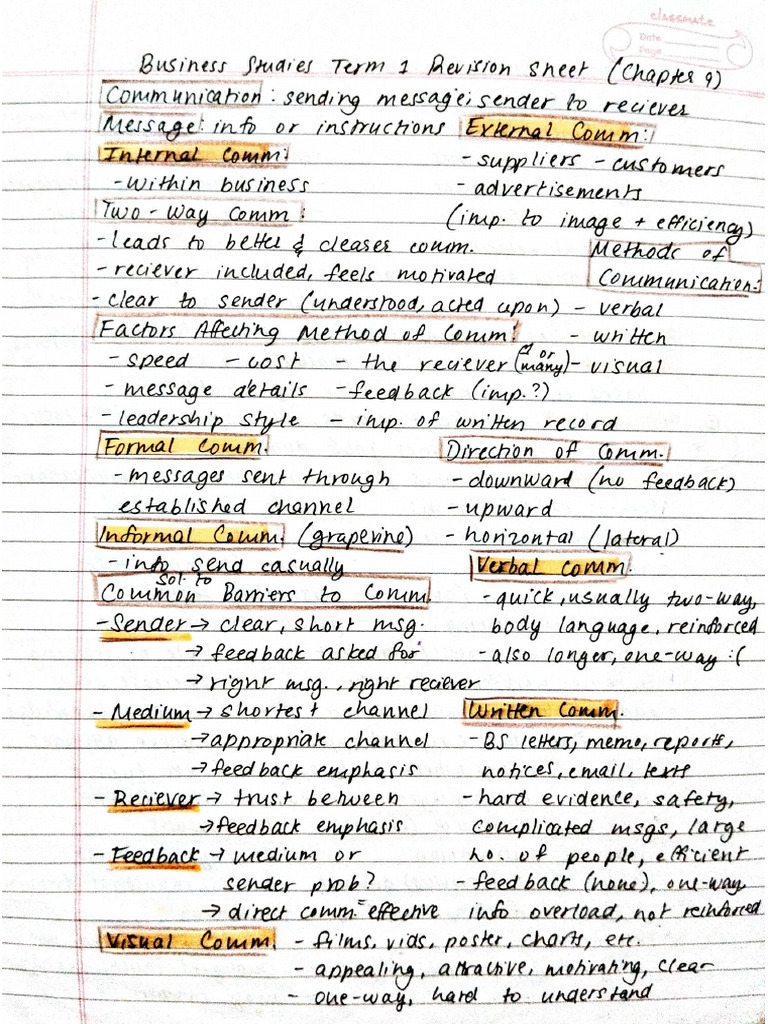 classmate
Date
Page
Business Studies Term 1 Revision Sheet (Chapter 9)
Communication: sending message; sender to reciever
Message: info or instructions
External Comm:
Internal Comm:
- suppliers - customers
- within business
- advertisements
Two-Way Comm:
(imp. to image + efficiency)
- leads to better & clearer comm.
Methods of
- reciever included, feels motivated
Communication:
- clear to sender (understood, acted upon)
- verbal
Factors Affecting Method of Comm:
- written
- speed - cost - the reciever (1 or many)
- visual
- message details - feedback (imp.?)
- leadership style - imp. of written record
Formal Comm.
- messages sent through
established channel
Direction of Comm.
- downward (no feedback)
- upward
- horizontal (lateral)
Informal Comm. (grapevine)
- info send casually
Verbal Comm.
- quick, usually two-way,
body language, reinforced
- also longer, one-way :(
sol. to
Common Barriers to Comm.
- Sender → clear, short msg.
→ feedback asked for
→ right msg., right reciever
- Medium → shortest channel
→ appropriate channel
→ feedback emphasis
- Reciever → trust between
→ feedback emphasis
- Feedback → medium or
sender prob?
→ direct comm = effective
Written Comm.
- BS letters, memo, reports,
notices, email, texts
- hard evidence, safety,
complicated msgs, large
no. of people, efficient
- feedback (none), one-way
info overload, not reinforced
Visual Comm. - films, vids, poster, charts, etc.
- appealing, attractive, motivating, clear
- one-way, hard to understand